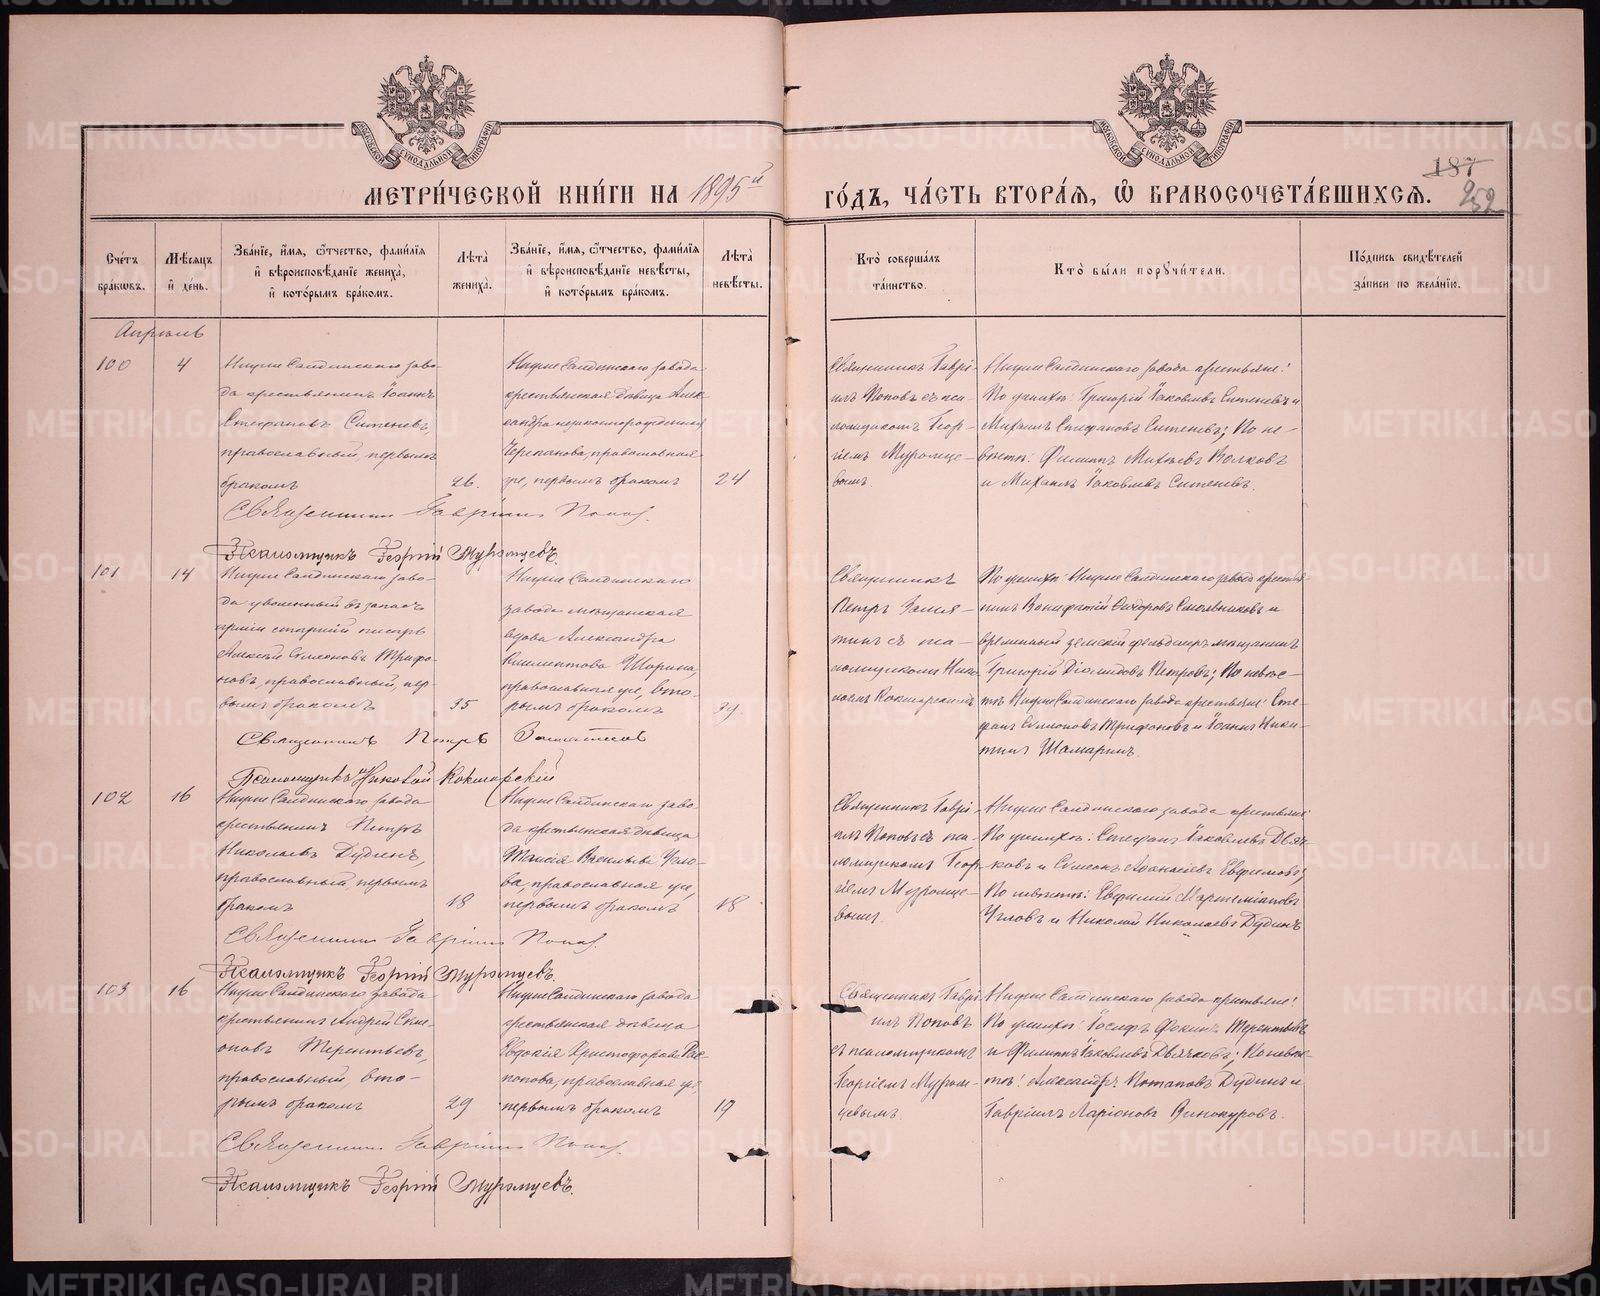 МЕТРИ́ЧЕСКОЙ КНИ́ГИ НА 1895й
ГО́ДЪ, ЧА́СТЬ ВТОРА́Я, Ѡ БРАКОСОЧЕТА́ВШИХСЯ.
187
252
МОСКОВСКОЙ СѴНОДАЛЬНОЙ ТИПОГРАФІИ
МОСКОВСКОЙ СѴНОДАЛЬНОЙ ТИПОГРАФІИ
Сче́тъ бра́кѡвъ.
Мѣ́сяцъ и҆ де́нь.
Зва́нїе, и҆́мя, ѻ҆́тчество, фами́лїя и҆ вѣроисповѣ́данїе жениха̀, и҆ кото́рымъ бра́комъ.
Лѣ́та жениха̀.
Зва́нїе, и҆́мя, ѻ҆́тчество, фами́лїя и҆ вѣроисповѣ́данїе невѣ́сты, и҆ кото́рымъ бра́комъ.
Лѣ́та невѣ́сты.
Кто̀ соверша́лъ та́инство.
Кто̀ бы́ли порꙋчи́тели.
По́дпись свидѣ́телей за́писи по жела́нїю.
Апрѣль
100
4
Нижне Салдинскаго заво-
да крестьянинъ Іоаннъ
Стефановъ Ситневъ,
православный, первымъ
бракомъ
26.
Нижне Салдинскаго завода
крестьянская дѣвица Алек-
сандра незаконнорожденная
Черепанова, православная
же, первымъ бракомъ
24
Священникъ Гаврі-
илъ Поповъ съ пса-
ломщикомъ Геор-
гіемъ Муромце-
вымъ.
Нижне Салдинскаго завода крестьяне:
По женихѣ: Григорій Іаковлевъ Ситневъ и
Михаилъ Стефановъ Ситневъ; По не-
вѣстѣ: Филиппъ Матѳеевъ Волковъ
и Михаилъ Іаковлевъ Ситневъ.
Священникъ Гавріилъ Поповъ.
Псаломщикъ Георгій Муромцевъ.
101
14
Нижне Салдинскаго заво-
да уволенный въ запасъ
арміи старшій писарь
Алексѣй Симеоновъ Трифо-
новъ, православный, пер-
вымъ бракомъ
35
Нижне Салдинскаго
завода мѣщанская
вдова Александра
Климентова Шорина,
православная же, вто-
рымъ бракомъ
Священникъ
Петръ
съ пса-
ломщикомъ Нико-
лаемъ Кокшарскимъ
По женихѣ: Нижне Салдинскаго завода крестья-
нинъ Вонифатій Ѳидоровъ Смольниковъ и
временный земскій фельдшеръ мѣщанинъ
Григорій Діомидовъ Петровъ; По невѣс-
тѣ: Нижне Салдинскаго завода крестьяне: Сте-
фанъ Симеоновъ Трифоновъ и Іоаннъ Ники-
тинъ Шамаринъ.
Священникъ Петръ
Псаломщикъ Николай Кокшарскій
102
16
Нижне Салдинскаго завода
крестьянинъ Петръ
Николаевъ Дудинъ,
православный, первымъ
бракомъ
18
Нижне Салдинскаго заво-
да крестьянская дѣвица
Таисія Васильева Угло-
ва, православная же,
первымъ бракомъ
18
Священникъ Гаврі-
илъ Поповъ съ пса-
ломщикомъ Геор-
гіемъ Муромце-
вымъ.
Нижне Салдинскаго завода крестьяне:
По женихѣ: Стефанъ Іаковлевъ Дьяч-
ковъ и Симеонъ Аѳанасіевъ Евфимовъ;
По невѣстѣ: Евфимій Мартеміановъ
Угловъ и Николай Николаевъ Дудинъ
Священникъ Гавріилъ Поповъ.
Псаломщикъ Георгій Муромцевъ.
103
16
Нижне Салдинскаго завода
крестьянинъ Андрей Сим-
оновъ Терентьевъ,
православный, вто-
рымъ бракомъ
29
Нижне Салдинскаго завода
крестьянская дѣвица
Евдокія Христофорова Рас-
попова, православная же,
первымъ бракомъ
19
Священникъ Гаврі-
илъ Поповъ
съ псаломщикомъ
Георгіемъ Муром-
цевымъ.
Нижне Салдинскаго завода крестьяне:
По женихѣ: Іосифъ Ѳокинъ Терентьевъ
и Филиппъ Іаковлевъ Дьячковъ; По невѣс-
тѣ: Александръ Потаповъ Дудинъ и
Гавріилъ Ларіоновъ Винокуровъ.
Священникъ Гавріилъ Поповъ.
Псаломщикъ Георгій Муромцевъ.
METRIKI.GASO-URAL.RU